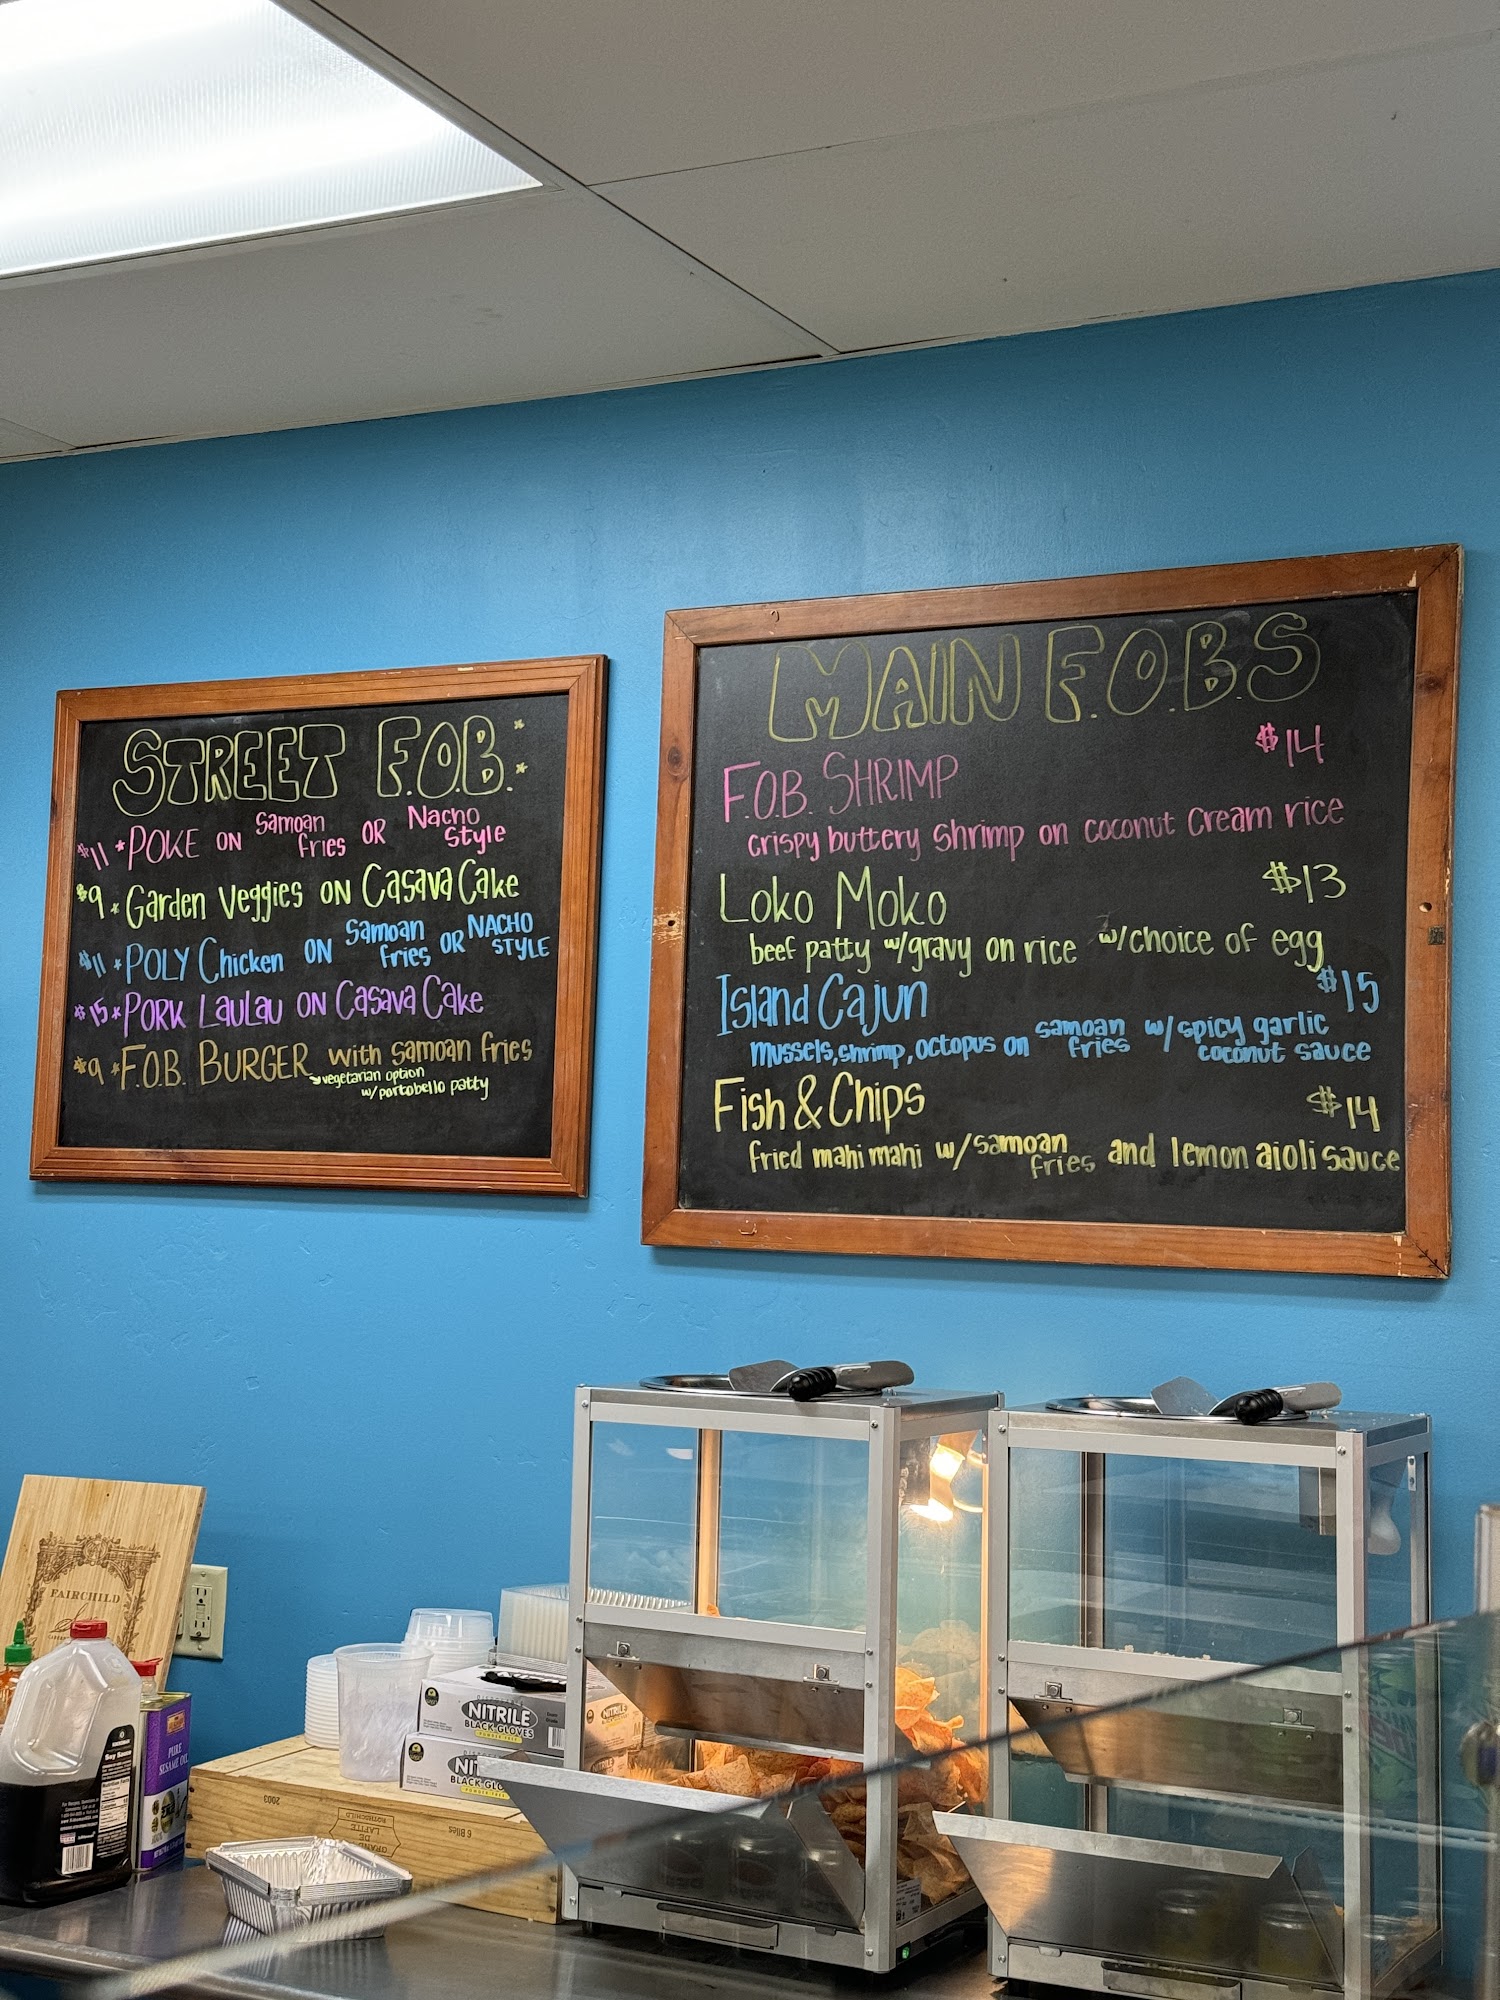 STREET F.O.B.
$11 * POKE ON Samoan fries OR Nacho Style
$9 * Garden Veggies ON Casava Cake
$11 * POLY Chicken ON Samoan fries OR NACHO STYLE
$15 * PORK LAULAU ON Casava Cake
$9 * F.O.B. BURGER with samoan fries
vegetarian option
w/portobello patty
MAIN F.O.B.S
F.O.B. SHRIMP $14
crispy buttery shrimp on coconut cream rice
Loko Moko $13
beef patty w/gravy on rice w/choice of egg
Island Cajun $15
mussels, shrimp, octopus on samoan fries w/spicy garlic coconut sauce
Fish & Chips $14
fried mahi mahi w/samoan fries and lemon aioli sauce
FAIRCHILD
Soy Sauce
PURE
SESAME OIL
NITRILE
BLACK GLOVES
POWDER FREE
NI
BLACK GLO
2003
LAFITE
ROTHSCHILD
6 Btles